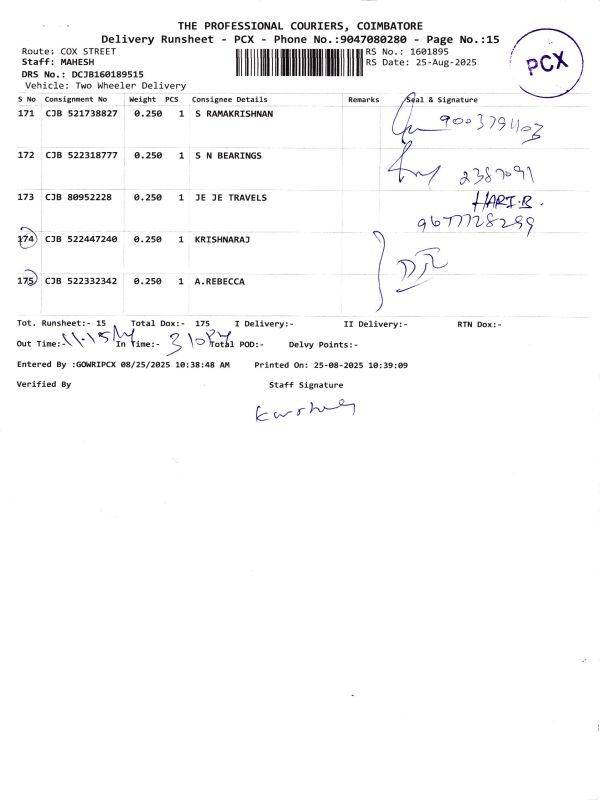 THE PROFESSIONAL COURIERS, COIMBATORE
Delivery Runsheet - PCX - Phone No.:9047080280 - Page No.:15
Route: COX STREET
Staff: MAHESH
DRS No.: DCJB160189515
Vehicle: Two Wheeler Delivery
RS No.: 1601895
RS Date: 25-Aug-2025
PCX
S No Consignment No Weight PCS Consignee Details Remarks Seal & Signature
171 CJB 521738827 0.250 1 S RAMAKRISHNAN 9003794103
172 CJB 522318777 0.250 1 S N BEARINGS 2387091
173 CJB 80952228 0.250 1 JE JE TRAVELS HARI.R.
9677728299
174 CJB 522447240 0.250 1 KRISHNARAJ
175 CJB 522332342 0.250 1 A.REBECCA
Tot. Runsheet:- 15 Total Dox:- 175 I Delivery:- II Delivery:- RTN Dox:-
Out Time:- 11.15 In Time:- 310 Total POD:- Delvy Points:-
Entered By :GOWRIPCX 08/25/2025 10:38:48 AM Printed On: 25-08-2025 10:39:09
Verified By Staff Signature